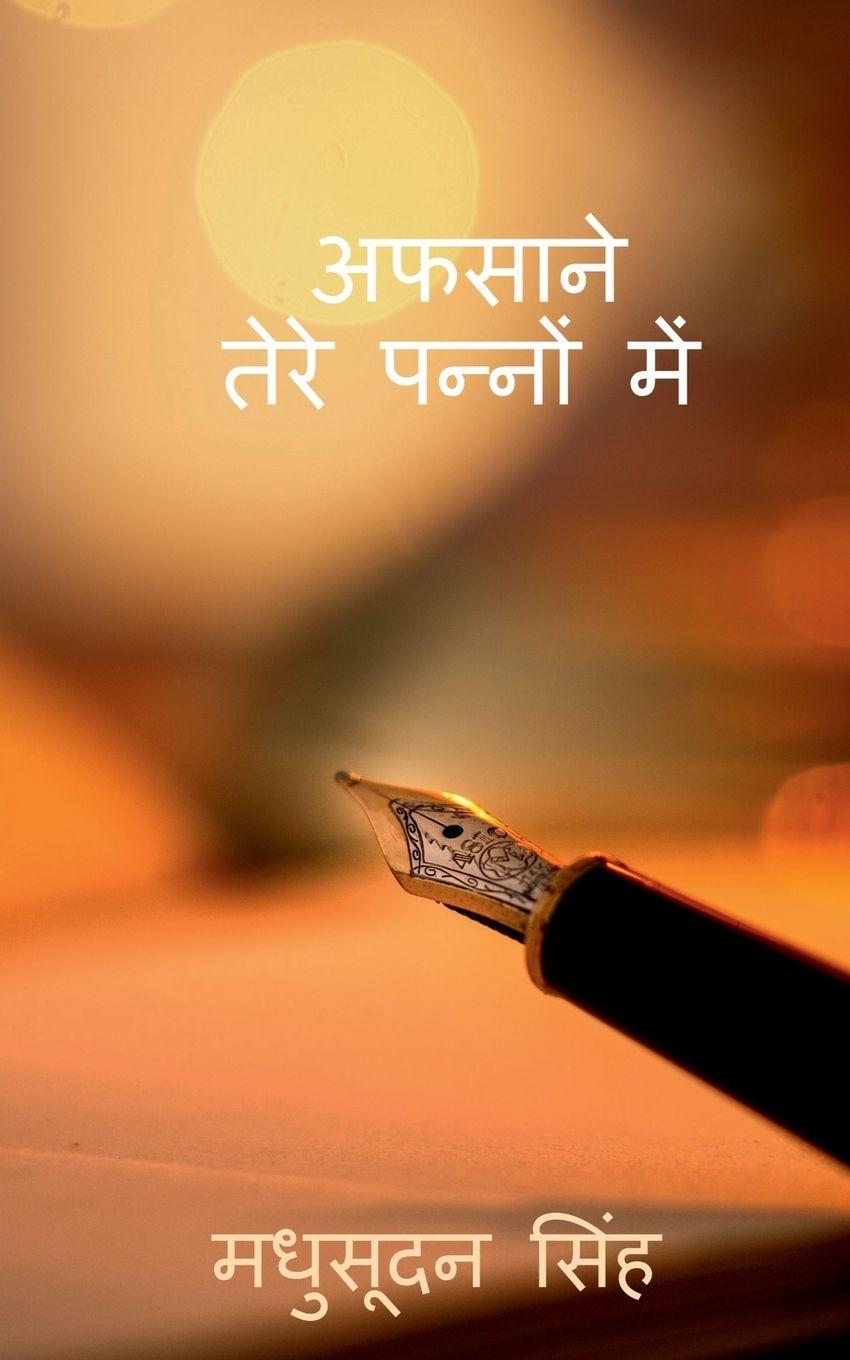 अफसाने
तेरे पन्नों में
मधुसूदन सिंह